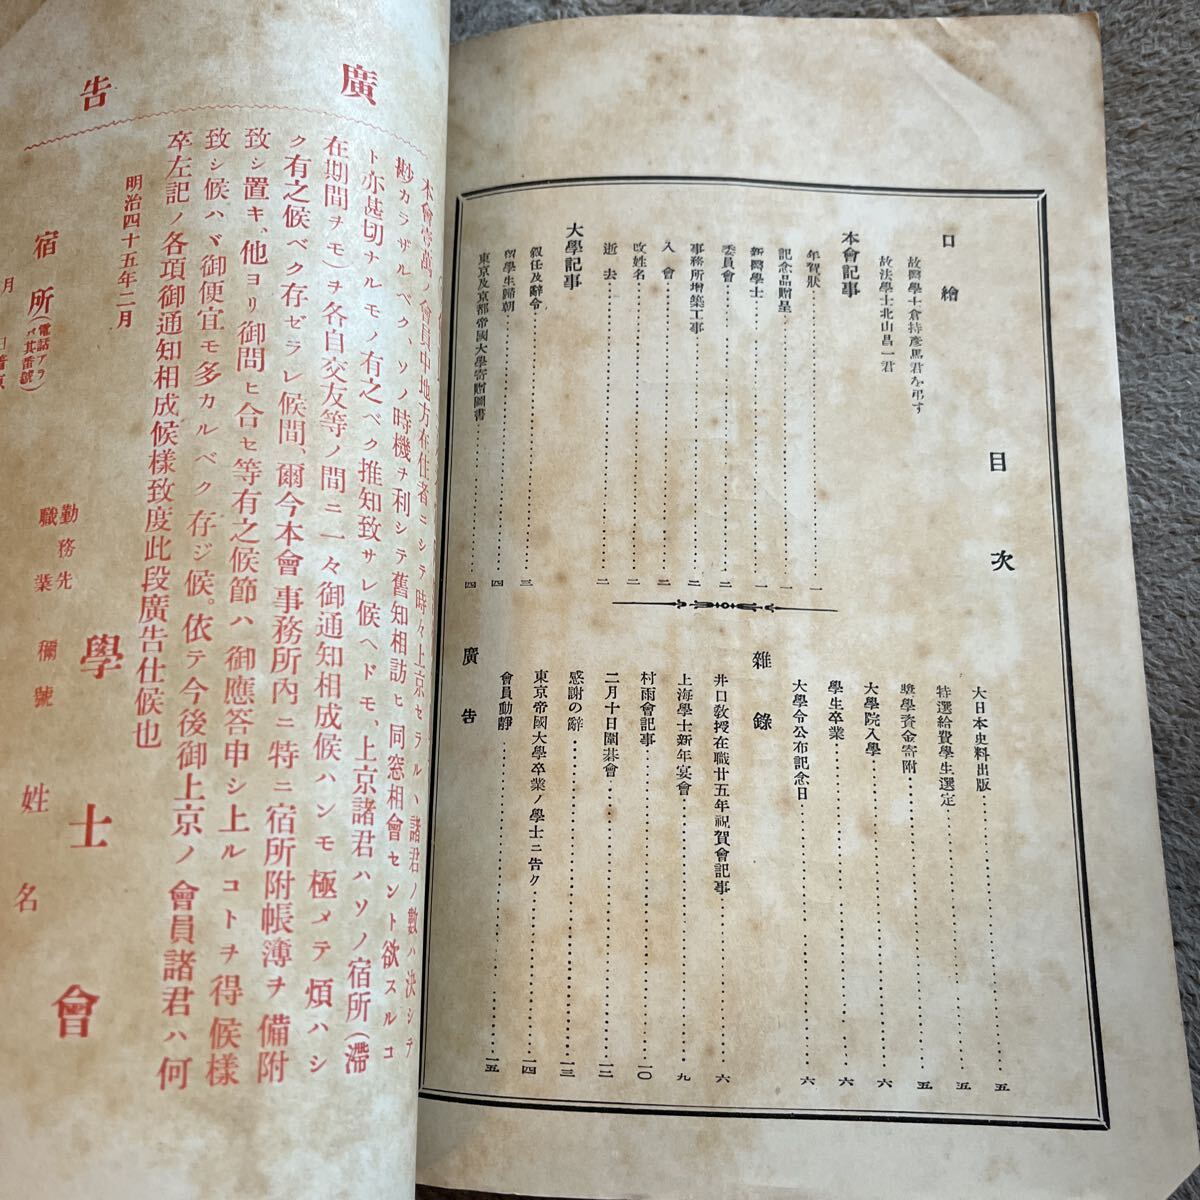 目次
口繪
故醫學士倉持彥馬君を弔す
故法學士北山昌一君
本會記事
年賀狀 一
記念品贈呈 一
新醫學士 一
委員會 二
事務所增築工事 二
入會 二
改姓名 二
逝去 二
大學記事
敍任及辭令 三
留學生歸朝 四
東京及京都帝國大學寄贈圖書 四
大日本史料出版 五
特選給費學生選定 五
獎學資金寄附 五
大學院入學 六
學生卒業 六
大學令公布記念日 六
雜錄
井口敎授在職廿五年祝賀會記事 六
上海學士新年宴會 九
村雨會記事 一〇
二月十日圍碁會 一二
感謝の辭 一三
東京帝國大學卒業ノ學士ニ告ク 一四
會員動靜 一五
廣告
廣告
本會
萬ノ會員中地方在住者ニシテ時々上京セラルヽ諸君ノ數ハ決シテ
尠カラザルベク、ソノ時機ヲ利シテ舊知相訪ヒ同窓相會セント欲スルコ
ト亦甚切ナルモノ有之ベク推知致サレ候ヘドモ、上京諸君ハソノ宿所(滯
在期間ヲモ)ヲ各自交友等ノ間ニ一々御通知相成候ハンモ極メテ煩ハシ
ク有之候ベク存ゼラレ候間、爾今本會事務所內ニ特ニ宿所附帳簿ヲ備附
致シ置キ、他ヨリ御問ヒ合セ等有之候節ハ御應答申シ上ルコトヲ得候樣
致シ候ハヾ御便宜モ多カルベク存ジ候。依テ今後御上京ノ會員諸君ハ何
卒左記ノ各項御通知相成候樣致度此段廣告仕候也
明治四十五年二月
學士會
宿所(電話アラバ其番號)
勤務先
職業稱號
姓名
月